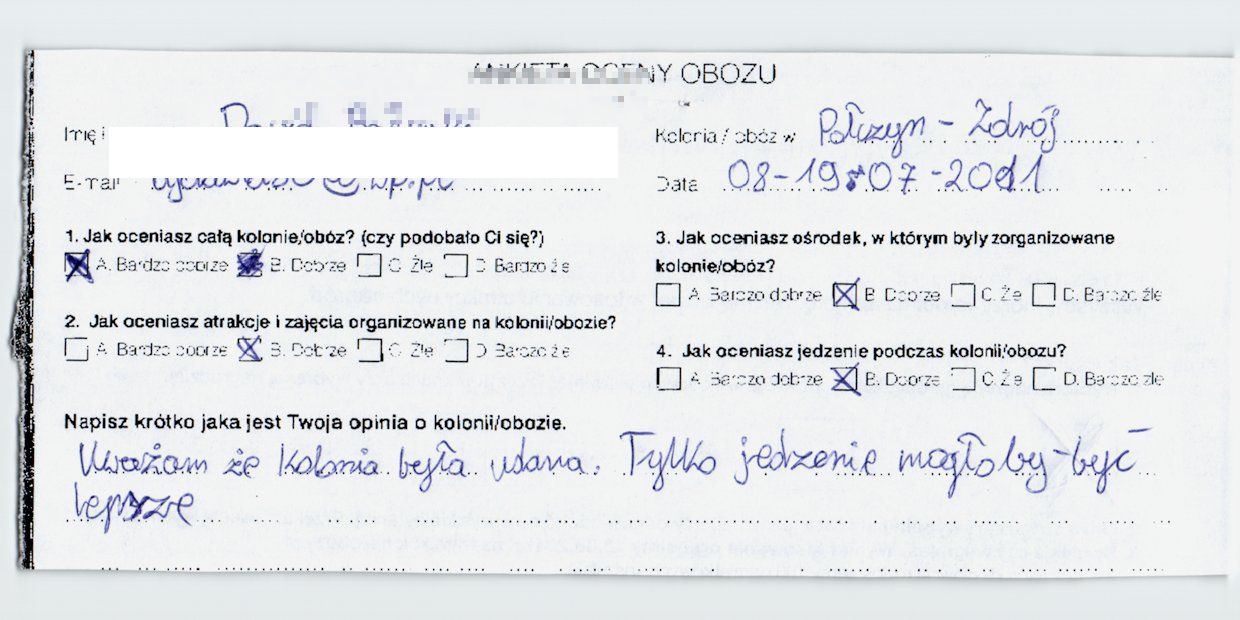 ANKIETA OCENY OBOZU
Imię i
Kolonia / obóz w Połczyn - Zdrój
E-mail
Data 08-19-07-2011
1. Jak oceniasz całą kolonie/obóz? (czy podobało Ci się?)
A. Bardzo dobrze B. Dobrze C. Źle D. Bardzo źle
2. Jak oceniasz atrakcje i zajęcia organizowane na kolonii/obozie?
A. Bardzo dobrze B. Dobrze C. Źle D. Bardzo źle
3. Jak oceniasz ośrodek, w którym były zorganizowane
kolonie/obóz?
A. Bardzo dobrze B. Dobrze C. Źle D. Bardzo źle
4. Jak oceniasz jedzenie podczas kolonii/obozu?
A. Bardzo dobrze B. Dobrze C. Źle D. Bardzo źle
Napisz krótko jaka jest Twoja opinia o kolonii/obozie.
Uważam że kolonia była udana. Tylko jedzenie mogło by-być
lepsze